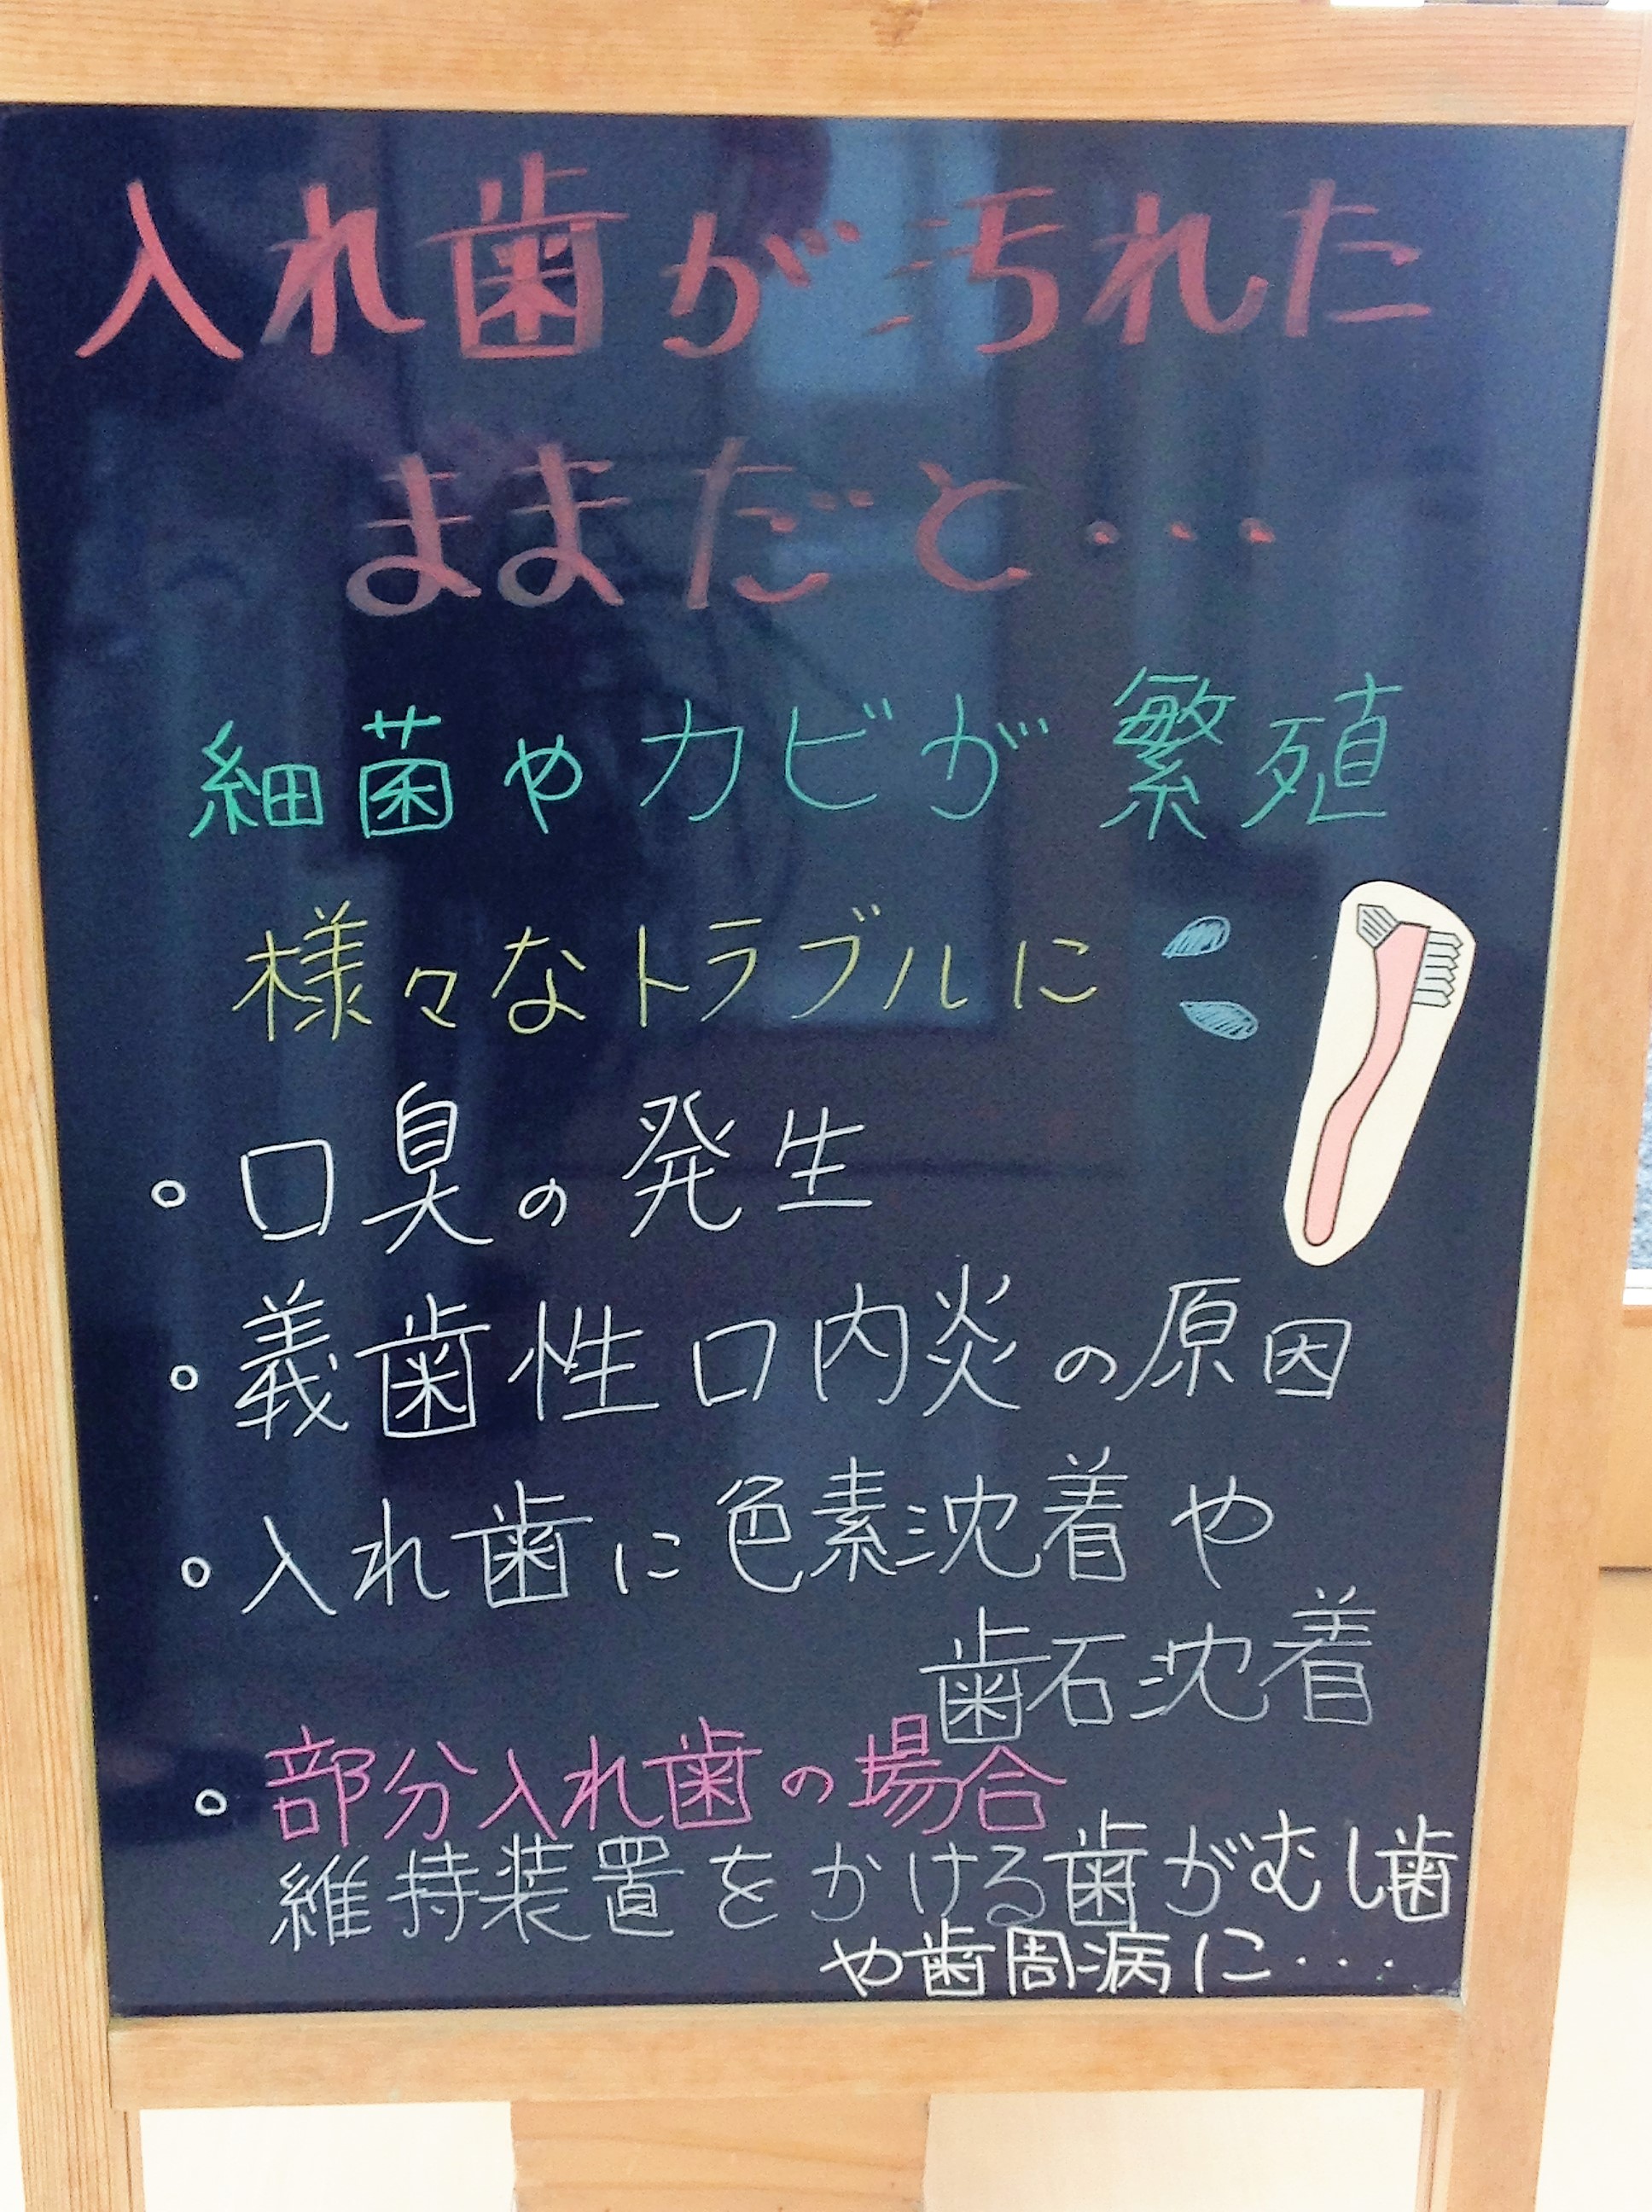 入れ歯が汚れた
ままだと・・・
細菌やカビが繁殖
様々なトラブルに
。口臭の発生
。義歯性口内炎の原因
。入れ歯に色素沈着や
歯石沈着
。部分入れ歯の場合
維持装置をかける歯がむし歯
や歯周病に・・・・